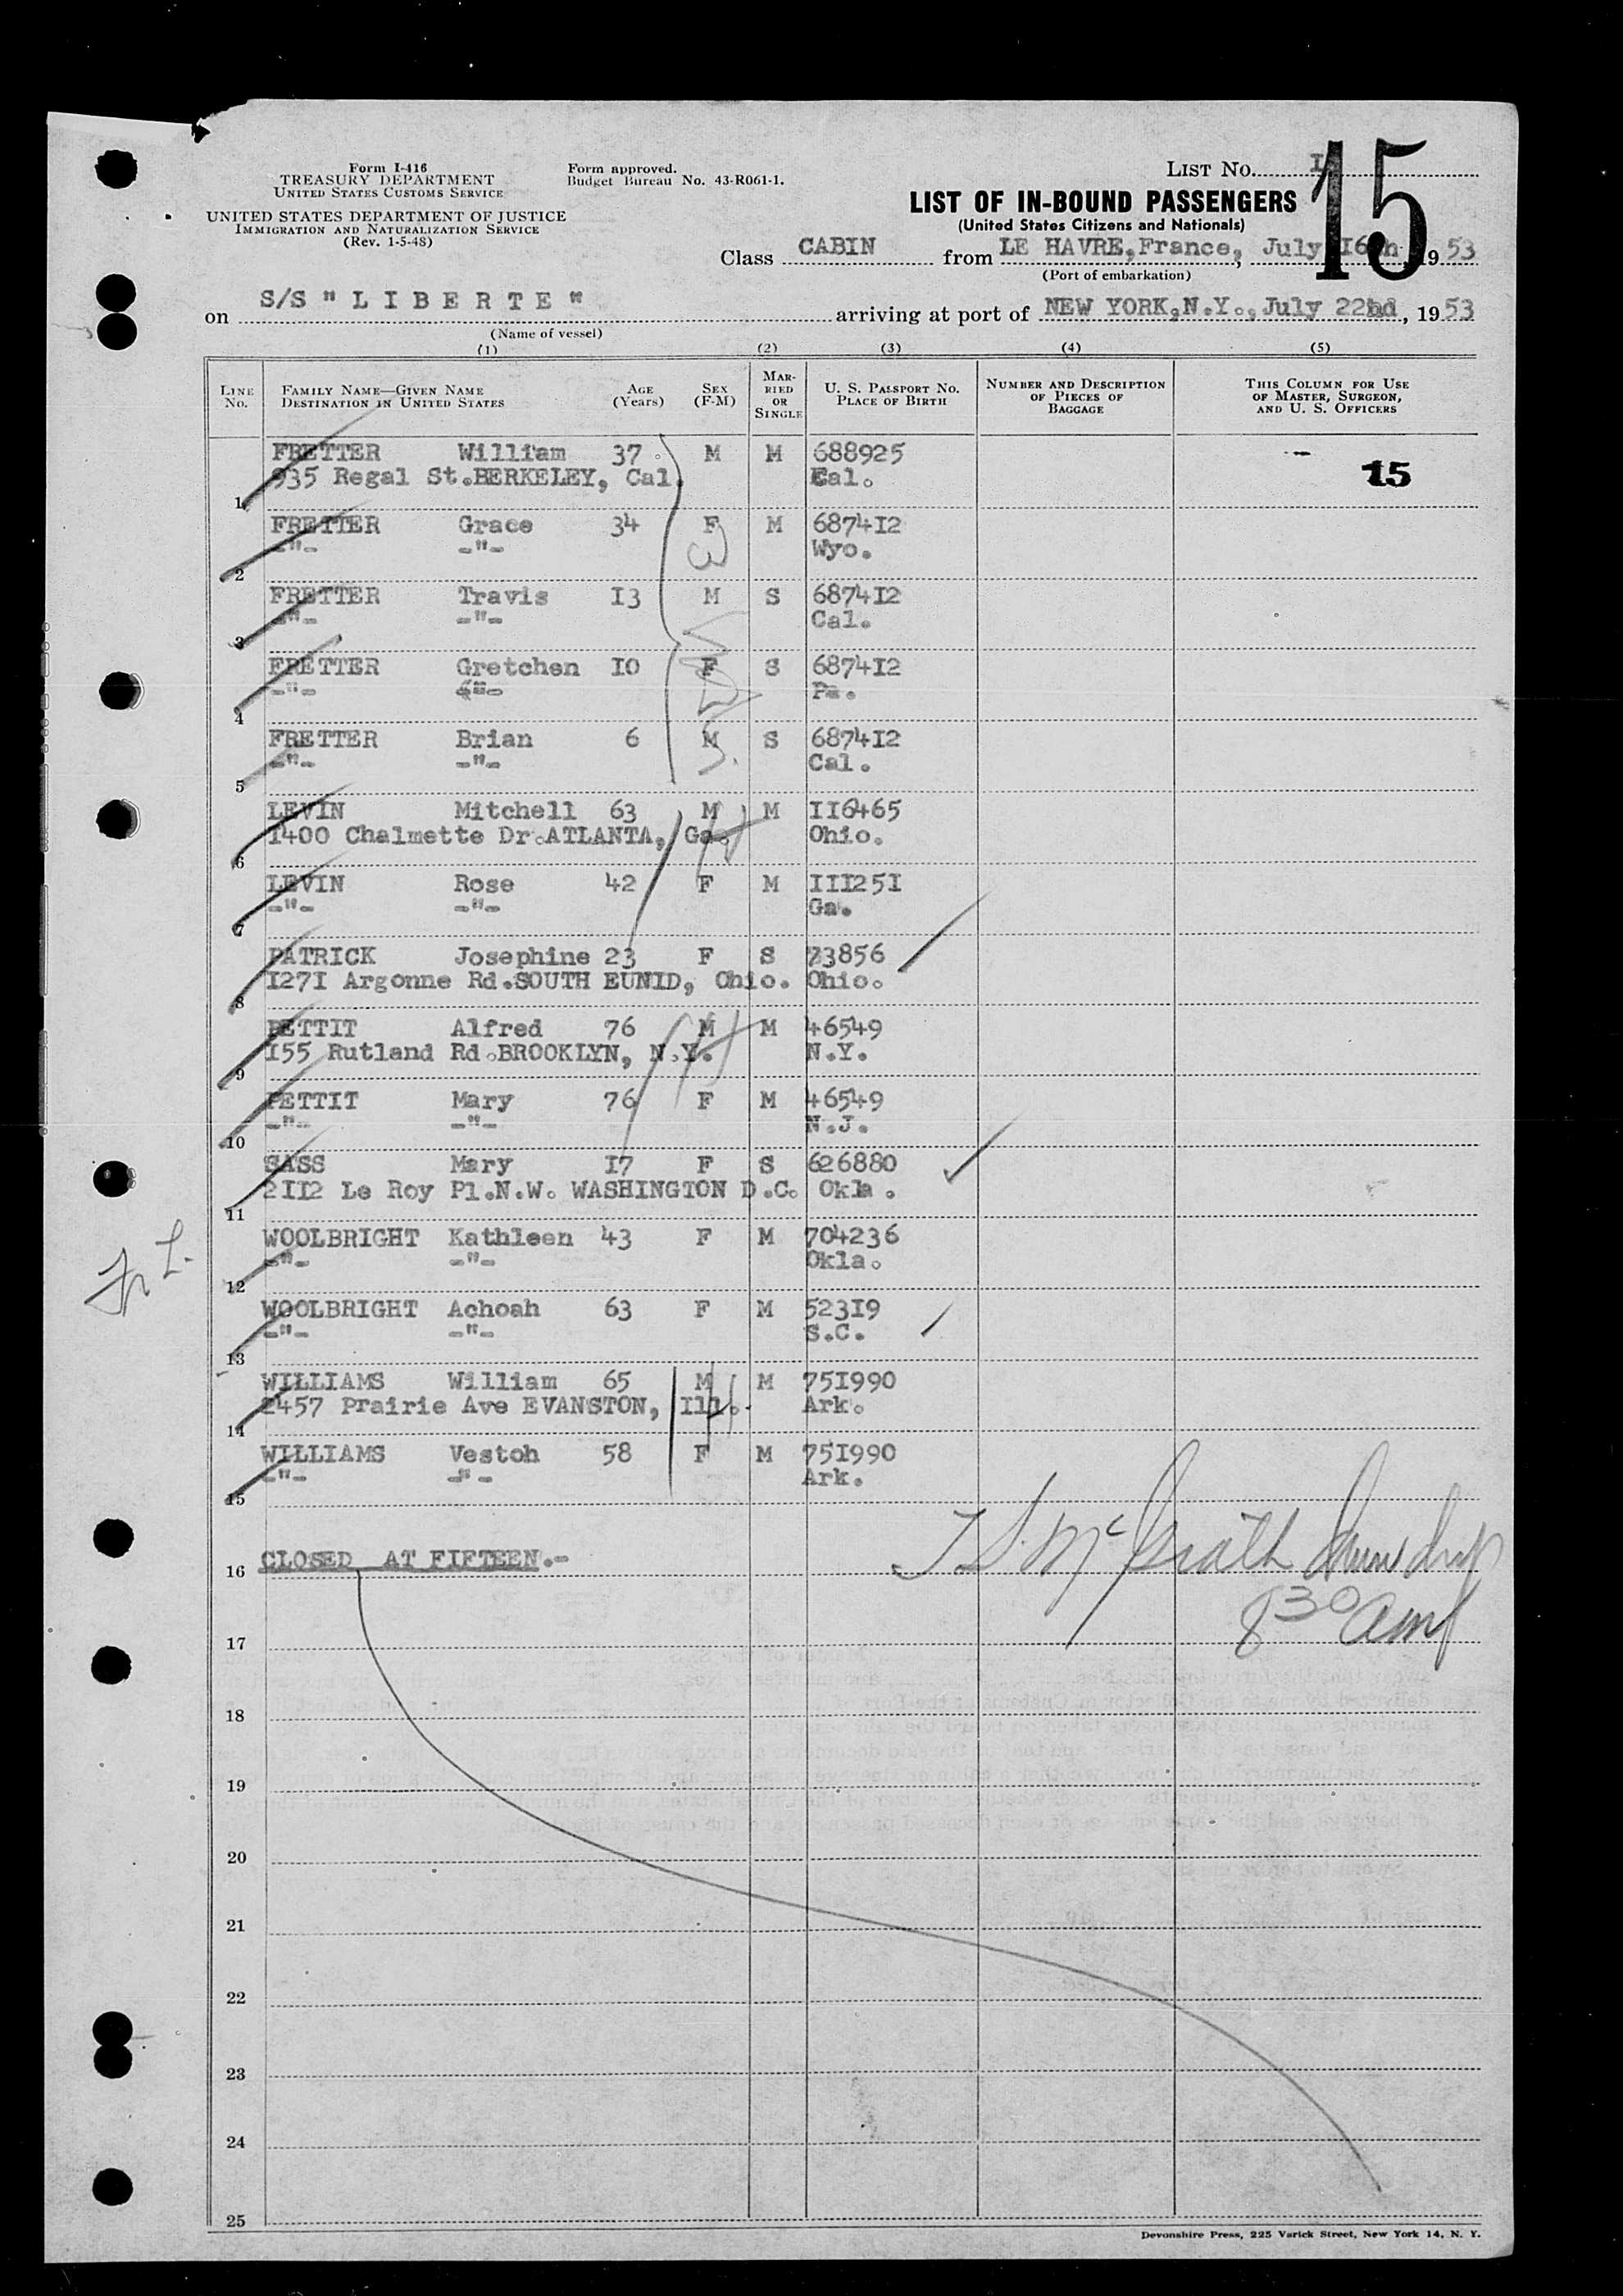 Form I-416
TREASURY DEPARTMENT
UNITED STATES CUSTOMS SERVICE
UNITED STATES DEPARTMENT OF JUSTICE
IMMIGRATION AND NATURALIZATION SERVICE
(Rev. 1-5-48)
Form approved.
Budget Bureau No. 43-R061-1.
LIST No. I
15
LIST OF IN-BOUND PASSENGERS
(United States Citizens and Nationals)
Class CABIN from LE HAVRE,France, July 16th 1953
(Port of embarkation)
on S/S " L I B E R T E " arriving at port of NEW YORK,N.Y., July 22nd, 1953
(Name of vessel)
(1) (2) (3) (4) (5)
LINE No. FAMILY NAME—GIVEN NAME DESTINATION IN UNITED STATES AGE (Years) SEX (F-M) MARRIED OR SINGLE U. S. PASSPORT No. PLACE OF BIRTH NUMBER AND DESCRIPTION OF PIECES OF BAGGAGE THIS COLUMN FOR USE OF MASTER, SURGEON, AND U. S. OFFICERS
FRETTER William 37 M M 688925
935 Regal St.BERKELEY, Cal. Cal. 15
1
FRETTER Grace 34 F M 687412
-"- -"- Wyo.
2
FRETTER Travis I3 M S 687412
-"- -"- Cal.
3
FRETTER Gretchen I0 F S 687412
-"- -"- Pa.
4
FRETTER Brian 6 M S 687412
-"- -"- Cal.
5
LEVIN Mitchell 63 M M II6465
1400 Chalmette Dr.ATLANTA, Ga. Ohio.
6
LEVIN Rose 42 F M III25I
-"- -"- Ga.
7
PATRICK Josephine 23 F S 73856
I27I Argonne Rd.SOUTH EUNID, Ohio. Ohio.
8
PETTIT Alfred 76 M M 46549
155 Rutland Rd.BROOKLYN, N.Y. N.Y.
9
PETTIT Mary 76 F M 46549
-"- -"- N.J.
10
SASS Mary I7 F S 626880
2II2 Le Roy Pl.N.W. WASHINGTON D.C. Okla .
11
WOOLBRIGHT Kathleen 43 F M 704236
-"- -"- Okla.
12
WOOLBRIGHT Achoah 63 F M 523I9
-"- -"- S.C.
13
WILLIAMS William 65 M M 75I990
2457 Prairie Ave EVANSTON, Ill. Ark.
14
WILLIAMS Vestoh 58 F M 75I990
-"- -"- Ark.
15
CLOSED AT FIFTEEN.-
16
8 30 am
17
18
19
20
21
22
23
24
25
Devonshire Press, 225 Varick Street, New York 14, N. Y.